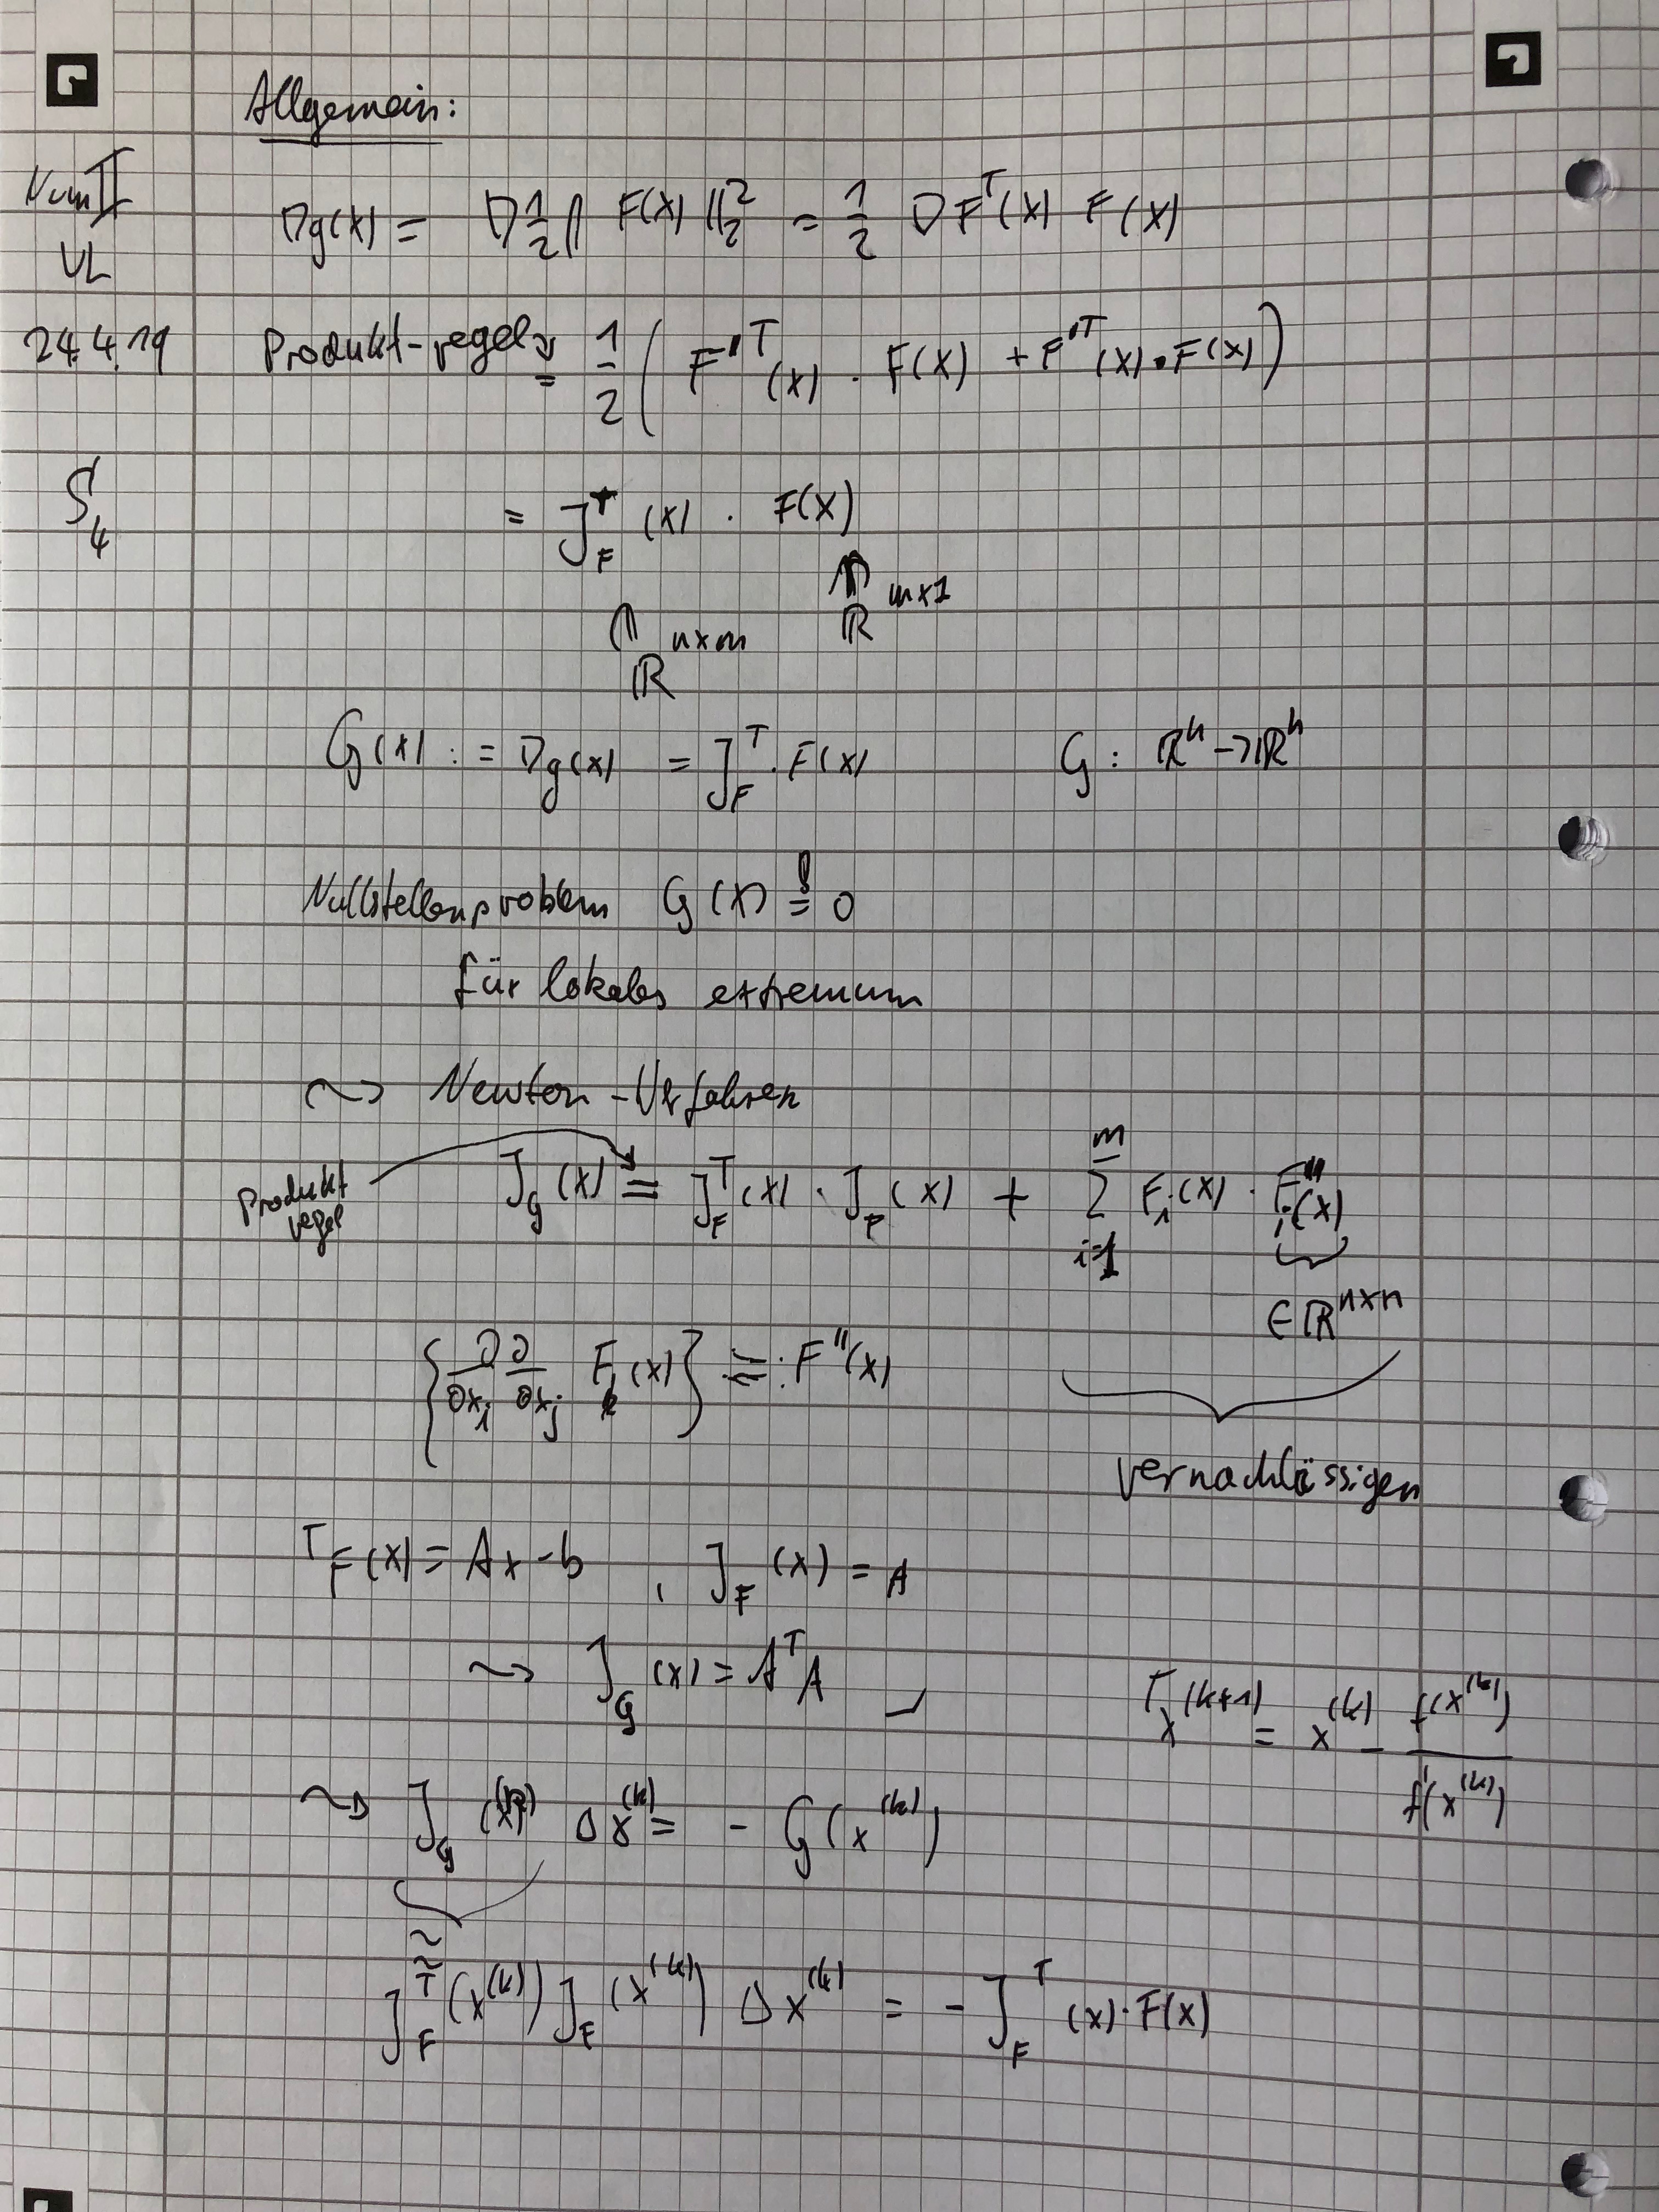 Allgemein:
Num II
VL
24.4.19
S4
Dg(x) = D 1/2 || F(x) ||_2^2 = 1/2 D F^T(x) F(x)
Produkt-regel = 1/2 ( F'^T(x) · F(x) + F'^T(x) · F(x) )
= J_F^T (x) · F(x)
ℝ^{n×m} ℝ^{m×1}
G(x) := Dg(x) = J_F^T · F(x) G: ℝ^n → ℝ^n
Nullstellenproblem G(x) =! 0
für lokales extremum
⇝ Newton-Verfahren
Produkt
regel
J_G (x) = J_F^T(x) · J_F(x) + Σ_{i=1}^m F_i(x) · F_i''(x)
∈ ℝ^{n×n}
{ ∂/∂x_i ∂/∂x_j F_k(x) } =: F''(x)
vernachlässigen
⌈ F(x) = Ax - b , J_F(x) = A
⇝ J_G (x) = A^T A ⌋
⌈ x^(k+1) = x^(k) - f(x^(k)) / f'(x^(k))
⇝ J_G (x^(k)) Δx^(k) = - G(x^(k))
≈
J_F^T (x^(k)) J_F (x^(k)) Δx^(k) = - J_F^T (x) · F(x)